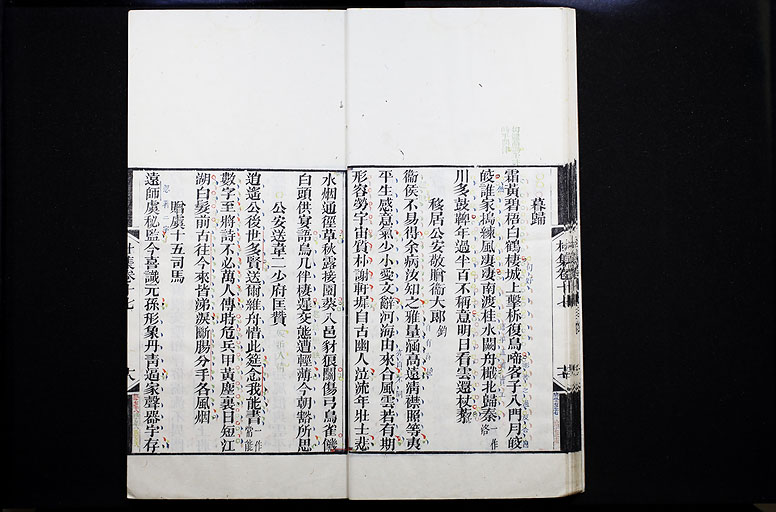 暮歸
霜黃碧梧白鶴棲城上擊柝復烏啼客子入門月皎
皎誰家搗練風淒淒南渡桂水闕舟楫北歸秦一作洛
川多鼓鼙年過半百不稱意明日看雲還杖藜
移居公安敬贈衞大郎鈞
衞侯不易得余病汝知之雅量涵高遠清襟照等夷
平生感意氣少小愛文辭河海由來合風雲若有期
形容勞宇宙質朴謝軒墀自古幽人泣流年壯士悲
水烟通徑草秋露接園葵入邑豺狼鬭傷弓鳥雀饑
白頭供宴語烏几伴棲遲交態遭輕薄今朝豁所思
公安送韋二少府匡贊
逍遙公後世多賢送爾維舟惜此筵念我能書一作常能
數字至將詩不必萬人傳時危兵甲黃塵裏日短江
湖白髮前古往今來皆涕淚斷腸分手各風烟
贈虞十五司馬
遠師虞秘監今喜識元孫形象丹青逼家聲器宇存
杜集卷十七